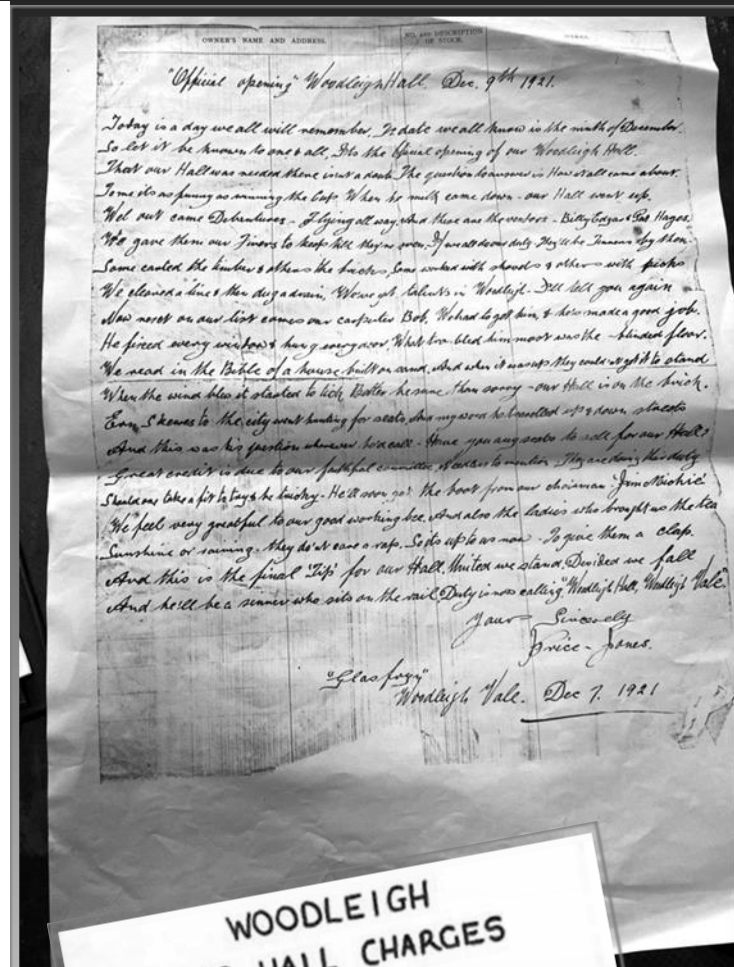 OWNER'S NAME AND ADDRESS.
NO. AND DESCRIPTION OF STOCK.
"Official opening" Woodleigh Hall. Dec. 9th 1921.
Today is a day we all will remember. The date we all know is the ninth of December.
So let it be known to one & all. It's the official opening of our Woodleigh Hall.
That our Hall was needed there isn't a doubt. The question to answer is How it all came about.
To me its as funny as running the Cup. When the milk came down - our Hall went up.
Wel out came Debentures - Flying all way, And these are the venders - Billy Edgar & Pat Hages.
We gave them our Fivers to keep till they're even. If we all do our duty They'll be Tenners by then.
Some carted the timber & others the bricks, Some worked with shovels & others with picks
We cleaned a line & then dug a drain, We've got talents in Woodleigh. I'll tell you again
Now next on our list comes our carpenter Bob. We had to get him, & he's made a good job.
He fixed every window & hung every door, What troubled him most was the - blinded floor.
We read in the Bible of a house built on sand. And when it was up they could not get it to stand
When the wind bles it started to tich Better be sure than sorry - our Hall is on the brick.
Ern Skewes to the city went hunting for seats, And my word he travelled up & down streets
And this was his question wherever he'd call - Have you any seats to sell for our Hall?
Great credit is due to our faithful committee, Needless to mention They are doing their duty
Should one take a fit to try & be tricky - He'll soon get the boot from our chairman "Jim Michie"
We feel very greatful to our good working bee. And also the ladies who brought us the tea
Sunshine or raining - they don't care a rap. So its up to us now - To give them a clap.
And this is the final "Tip" for our Hall. United we stand, Devided we fall
And he'll be a sinner who sits on the rail, Duty is now calling, "Woodleigh Hall, Woodleigh Vale"
Yours Sincerely
Price-Jones.
"Glasfryn"
Woodleigh Vale. Dec 7. 1921
WOODLEIGH
HALL CHARGES